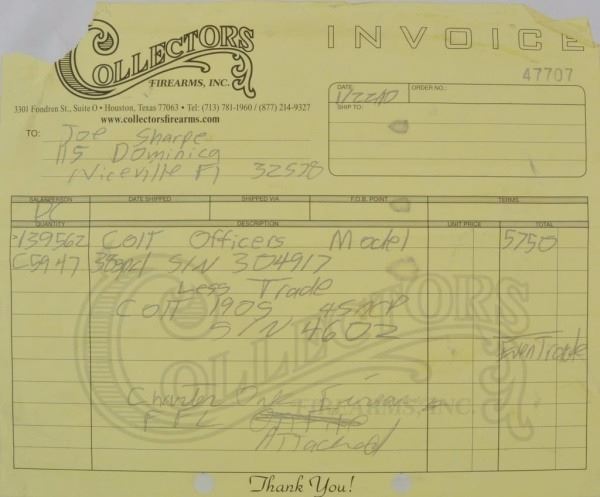 COLLECTORS
FIREARMS, INC.
INVOICE
47707
3301 Fondren St., Suite O • Houston, Texas 77063 • Tel: (713) 781-1960 / (877) 214-9327
www.collectorsfirearms.com
DATE
ORDER NO.:
SHIP TO:
TO: Joe Sharpe
115 Dominica
Niceville Fl 32578
SALESPERSON DATE SHIPPED SHIPPED VIA F.O.B. POINT TERMS
DC
QUANTITY DESCRIPTION UNIT PRICE TOTAL
139562 Colt Officers Model 5750
C5947 38spcl S/N 304917
Less Trade
Colt 1905 45ACP
S/N 4602
Even Trade
COLLECTORS
FIREARMS, INC.
Charter One
FFL
Attached
Thank You!